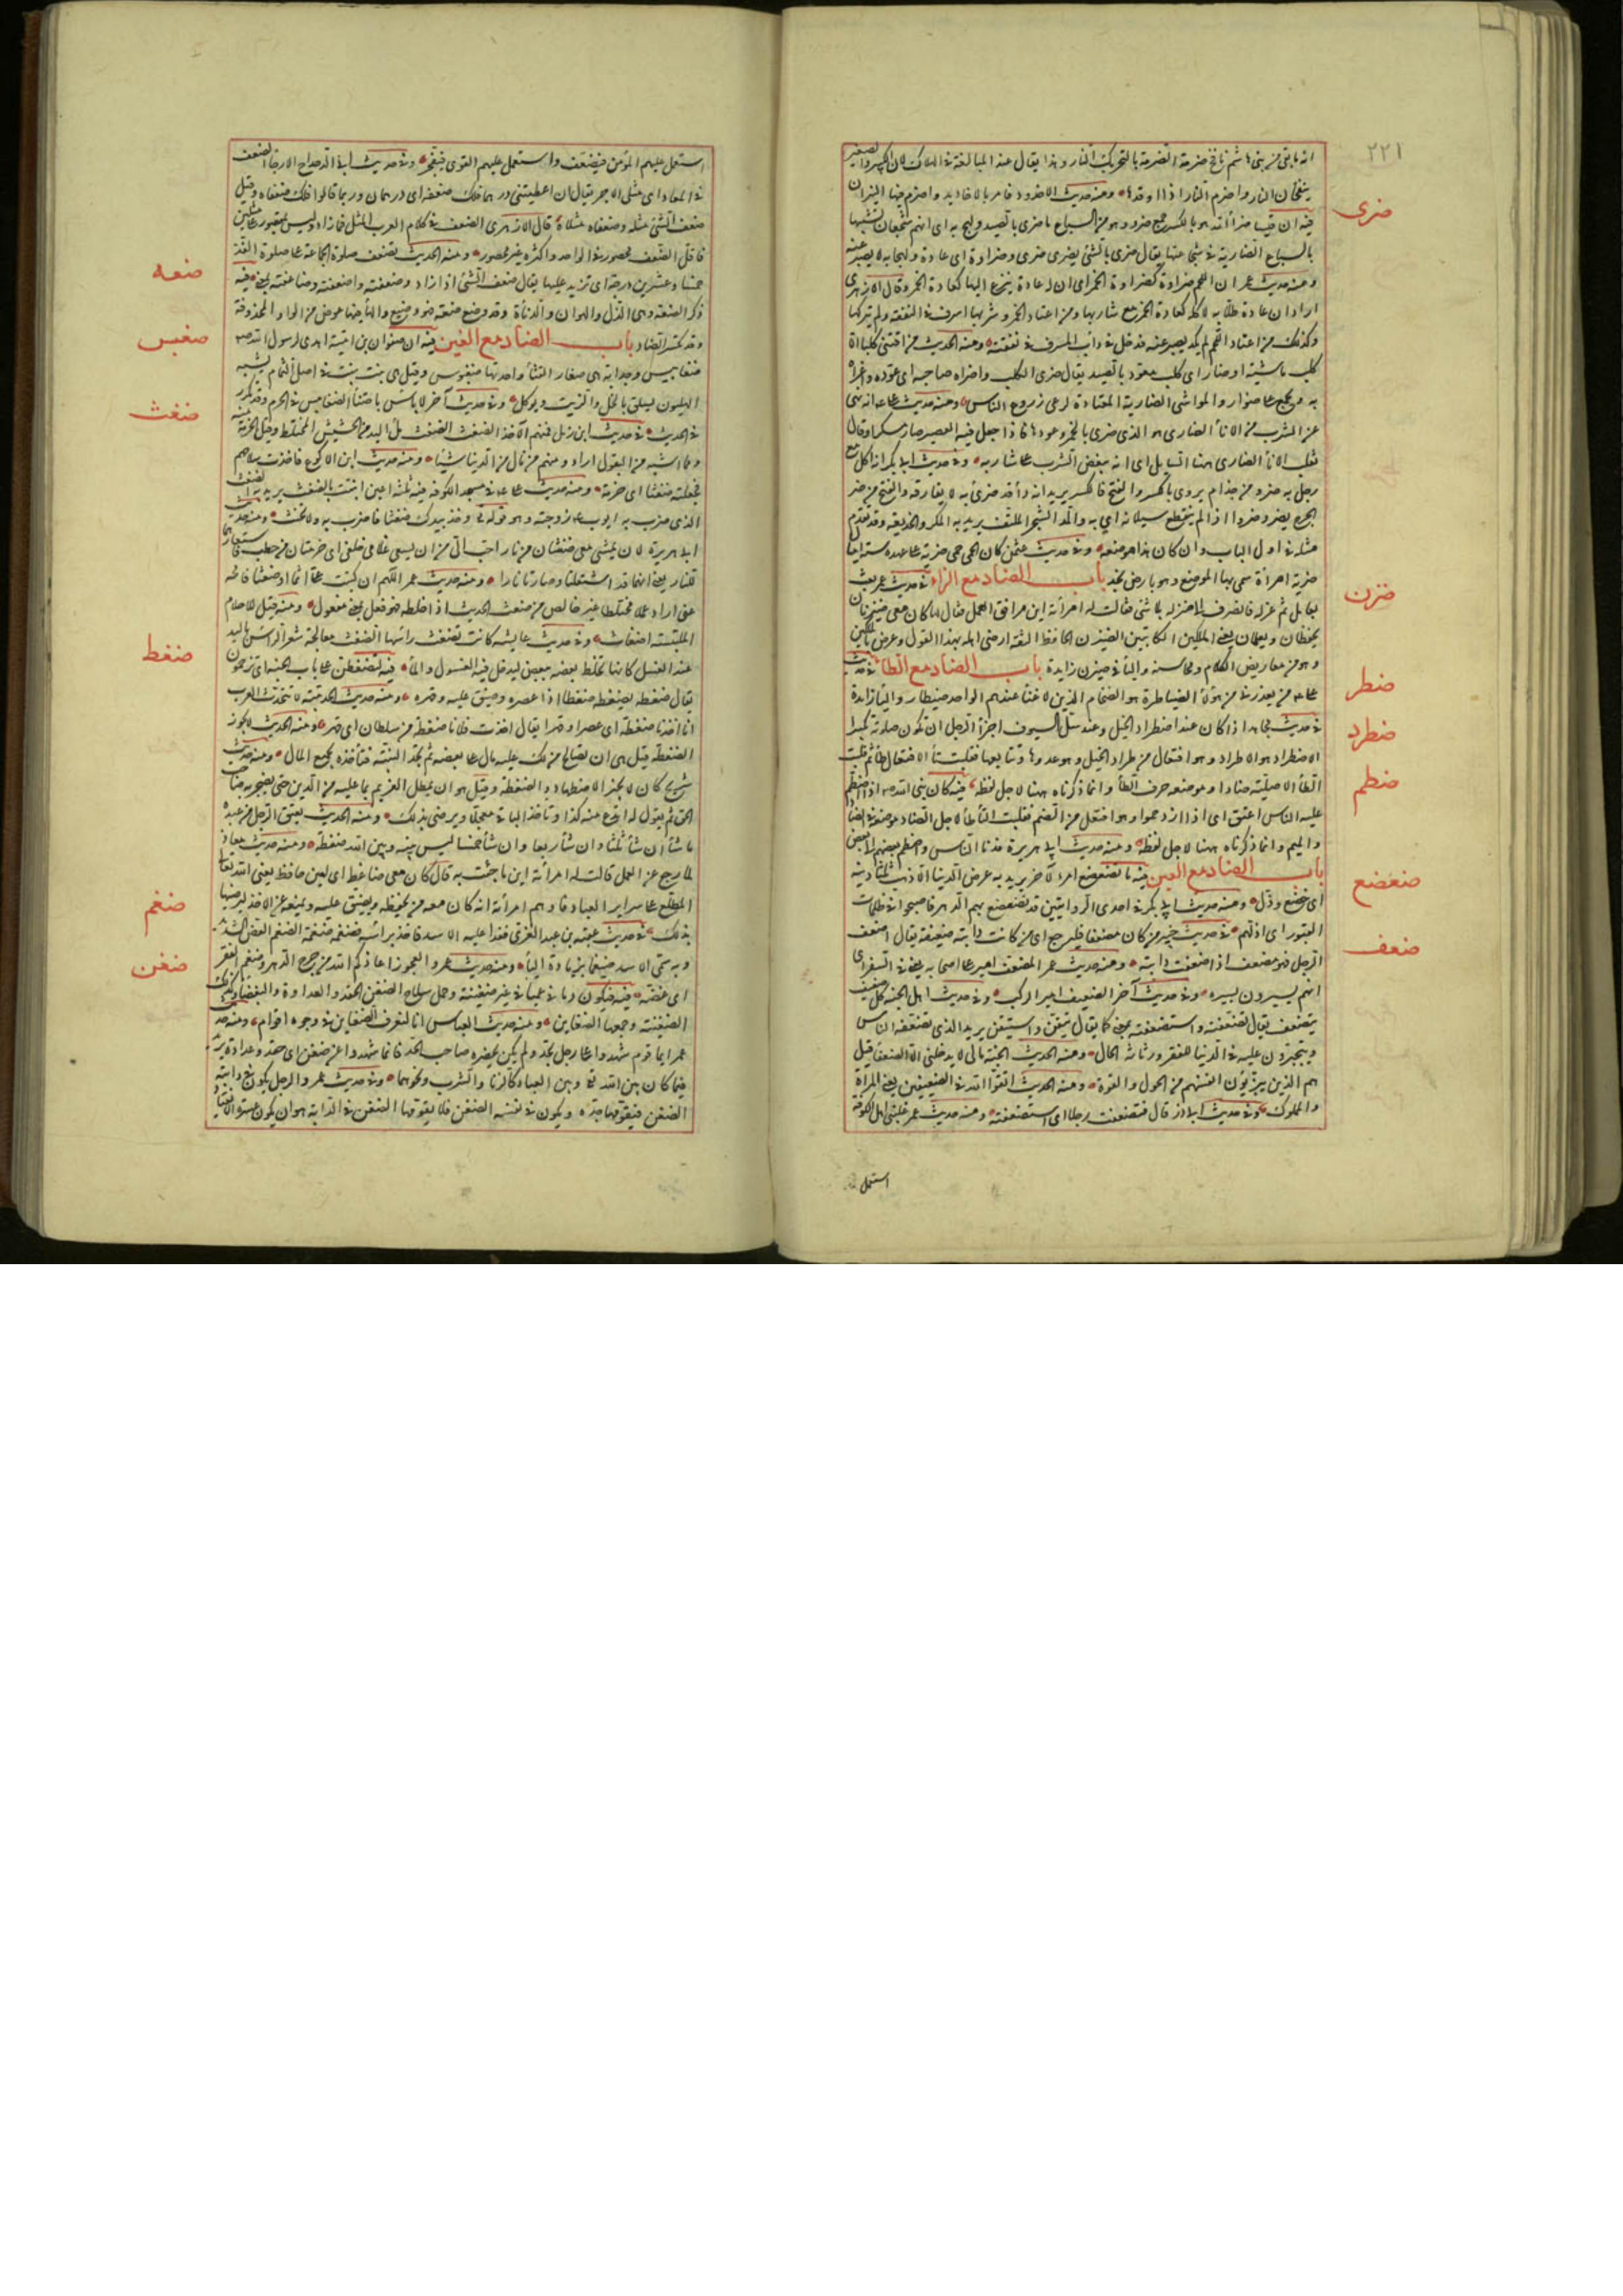 ٢٢١
انه ما بقى من بنى هاشم نافخ ضرمة الضرمة بالتحريك النار وهذا يقال عند المبالغة في الهلاك لان الكبير والصغير
ينفخان النار واضرم النار اذا اوقدها ومنه حديث الاخدود فامر بالاخاديد واضرم فيها النيران
ضرى
فيه ان قيسا ضراء الله هو بالكسر جمع ضرو وهو من السباع ما ضرى بالصيد ولهج به اى انهم شجعان تشبيها
بالسباع الضارية في شجاعتها يقال ضرى بالشئ يضرى ضرى وضراوة اى عادة ولهجا به لا يصبر عنه
ومنه حديث عمر ان للحم ضراوة كضراوة الخمر اى ان له عادة ينزع اليها كعادة الخمر وقال الازهرى
اراد ان عادة طلابه لاكله كعادة الخمر مع شاربها ومن اعتاد الخمر وشربها اسرف في النفقة ولم يتركها
وكذلك من اعتاد اللحم لم يكد يصبر عنه فدخل في داب المسرف في نفقته ومنه الحديث من اقتنى كلبا الا
كلب ماشية او ضار اى كلب معود بالصيد يقال ضرى الكلب واضراه صاحبه اى عوده واغراه
به ويجمع على ضوار والمواشى الضارية المعتادة لرعى زروع الناس ومنه حديث على انه نهى
عن الشرب من الاناء الضارى هو الذى ضرى بالخمر وعود بها فاذا جعل فيه العصير صار مسكرا وقال
ثعلب الاناء الضارى هنا السايل اى انه ينغص الشرب على شاربه وفي حديث ابى بكر انه اكل مع
رجل به ضرو من جذام يروى بالكسر والفتح فالكسر يريد انه داء قد ضرى به لا يفارقه والفتح من ضر
الجرح يضرو ضروا اذا لم ينقطع سيلانه
مثله في اول الباب وان كان هذا موضعه وفي حديث عثمن كان الحمى حمى ضرية على عهده ستة اميال
ضرية امراة سمى بها الموضع وهو بارض نجد باب الضاد مع الزاء في حديث عمر بعث
ضزن
بعامل ثم عزله فانصرف الى منزله بلا شئ فقالت له امراته اين مرافق العمل فقال لها كان معى ضيزنان
يحفظان ويعلمان يعنى الملكين الكاتبين الضيزن الحافظ الثقة ارضى اهله بهذا القول وعرض بالملكين
وهو من معاريض الكلام ومحاسنه والياء في ضيزن زايدة باب الضاد مع الطاء في حديث
ضطر
على من يعذرنى من هؤلاء الضياطرة هم الضخام الذين لا غناء عندهم الواحد ضيطار والياء زايدة
ضطرد
في حديث مجاهد اذا كان عند اضطراد الخيل وعند سل السيوف اجزأ الرجل ان تكون صلوته تكبيرا
الاضطراد هو الاطراد وهو افتعال من طراد الخيل وهو عدوها وتتابعها فقلبت تاء الافتعال طاء ثم قلبت
ضطم
الطاء الاصلية ضادا وموضعه حرف الطاء وانما ذكرناه ههنا لاجل لفظه فيه كان نبى الله صه اذا اضطم
عليه الناس اعنق اى اذا ازدحموا وهو افتعل من الضم فقلبت التاء طاء لاجل الضاد وموضعه في الضاد
والميم وانما ذكرناه ههنا لاجل لفظه ومنه حديث ابى هريرة فدنا الناس واضطم بعضهم الى بعض
ضعضع
باب الضاد مع العين فيه ما تضعضع امرء لاخر يريد به عرض الدنيا الا ذهب ثلثا دينه
اى خضع وذل ومنه حديث ابى بكر في احدى الروايتين قد تضعضع بهم الدهر فاصبحوا في ظلمات
ضعف
القبور اى اذلهم في حديث خيبر من كان مضعفا فليرجع اى من كانت دابته ضعيفة يقال اضعف
الرجل فهو مضعف اذا ضعفت دابته ومنه حديث عمر المضعف امير على اصحابه يعنى في السفر اى
انهم يسيرون بسيره وفي حديث آخر الضعيف امير الركب وفي حديث اهل الجنة كل ضعيف
متضعف يقال تضعفته واستضعفته بمعنى كما يقال تيقن واستيقن يريد الذى يتضعفه الناس
ويتجبرون عليه في الدنيا للفقر ورثاثة الحال ومنه حديث الجنة مالى لا يدخلنى الا الضعفاء قيل
هم الذين يبرئون انفسهم من الحول والقوة ومنه الحديث اتقوا الله في الضعيفين يعنى المراة
والمملوك وفي حديث ابى ذر قال فتضعفت رجلا اى استضعفته ومنه حديث عمر غلبنى اهل الكوفة
استعمل
استعمل عليهم المؤمن فيضعف واستعمل عليهم القوى فيفجر وفي حديث ابى الدحداح الا رجاء الضعف
في المعاد اى مثلى الاجر يقال ان اعطيتنى درهما فلك ضعفه اى درهمان وربما قالوا فلك ضعفاه وقيل
ضعف الشئ مثله وضعفاه مثلاه قال الازهرى الضعف في كلام العرب المثل فما زاد وليس بمقصور على مثلين
فاقل الضعف محصور في الواحد واكثره غير محصور ومنه الحديث تضعف صلوة الجماعة على صلوة الفذ
ضعه
خمسا وعشرين درجة اى تزيد عليها يقال ضعف الشئ اذا زاد وضعفته واضعفته وضاعفته بمعنى فيه
ذكر الضعة وهى الذل والهوان والدناءة وقد وضع ضعة فهو وضيع والهاء فيها عوض من الواو المحذوفة
ضغبس
وقد تكسر الضاد باب الضاد مع الغين فيه ان صفوان بن امية اهدى لرسول الله صه
ضغابيس وجداية هى صغار القثاء واحدتها ضغبوس وقيل هى نبت ينبت في اصل الثمام يشبه
الهليون يسلق بالخل والزيت ويوكل وفي حديث آخر لا باس باجتناء الضغابيس في الحرم وقد تكرر
ضغث
في الحديث في حديث ابن زمل فمنهم الاخذ الضغث الضغث ملء اليد من الحشيش المختلط وقيل الحزمة منه
ومما اشبهه من البقول اراد ومنهم من نال من الدنيا شيئا ومنه حديث ابن الاكوع فاخذت سلاحهم
فجعلته ضغثا اى حزمة ومنه حديث على في مسجد الكوفة فيه ثلثة اعين انبتت بالضغث يريد به الضغث
الذى ضرب به ايوب زوجته وهو قوله تع وخذ بيدك ضغثا فاضرب به ولا تحنث ومنه حديث
ابى هريرة لان يمشى معى ضغثان من نار احب الى من ان يسعى غلامى خلفى اى حزمتان من حطب فاستعارهما
للنار يعنى انهما قد اشتعلتا وصارتا نارا ومنه حديث عمر اللهم ان كتبت على اثما او ضغثا فامحه
عنى اراد عملا مختلطا غير خالص من ضغث الحديث اذا خلطه فهو فعل بمعنى مفعول ومنه قيل للاحلام
الملتبسة اضغاث وفي حديث عايشه كانت تضغث راسها الضغث معالجة شعر الراس باليد
ضغط
عند الغسل كانها تخلط بعضه ببعض ليدخل فيه الغسول والماء فيه لتضغطن على باب الجنة اى تزحمون
يقال ضغطه يضغطه ضغطا اذا عصره وضيق عليه وقهره ومنه حديث الحديبية لا تتحدث العرب
انا اخذنا ضغطة اى عصرا وقهرا يقال اخذت فلانا ضغطة من سلطان اى قهر ومنه الحديث لا يجوز
الضغطة قيل هى ان تصالح من لك عليه مال على بعضه ثم تجد البينة فتاخذه بجميع المال ومنه حديث
شريح كان لا يجيز الاضطهاد والضغطة وقيل هو ان يمطل الغريم بما عليه من الدين حتى يضجر به صاحب
الحق ثم يقول له اتدع عنه كذا وتاخذ الباقى معجلا ويرضى بذلك ومنه الحديث يعتق الرجل من عبده
ما شاء ان شاء ثلثا وان شاء ربعا وان شاء خمسا ليس بينه وبين الله ضغطة ومنه حديث معاذ
لما رجع عن العمل قالت له امراته اين ما جئت به قال كان معى ضاغط اى امين حافظ يعنى الله تعالى
المطلع على سراير العباد فاوهم امراته انه كان معه من يحفظه ويضيق عليه ويمنعه عن الاخذ ليرضيها
ضغم
بذلك في حديث عتبة بن عبد العزى فعدا عليه الاسد فاخذ براسه فضغمه ضغمة الضغم العض الشديد
وبه سمى الاسد ضيغما بزيادة الياء ومنه حديث عمر والعجوز اعاذكم الله من جرح الدهر وضغم الفقر
ضغن
اى عضه فيه فيكون دماء في عمياء في غير ضغينة وحمل سلاح الضغن الحقد والعداوة والبغضاء وكذلك
الضغينة وجمعها الضغاين ومنه حديث العباس انا لنعرف الضغاين في وجوه اقوام ومنه حديث
عمر ايما قوم شهدوا على رجل بحد ولم يكن بحضرة صاحب الحد فانما شهدوا عن ضغن اى حقد وعداوة يريد
فيما كان بين الله تع وبين العباد كالزنا والشرب ونحوهما وفي حديث عمرو الرجل يكون في دابته
الضغن فيقومها جهده ويكون في نفسه الضغن فلا يقومها الضغن في الدابة هو ان يكون عسرة الانقياد